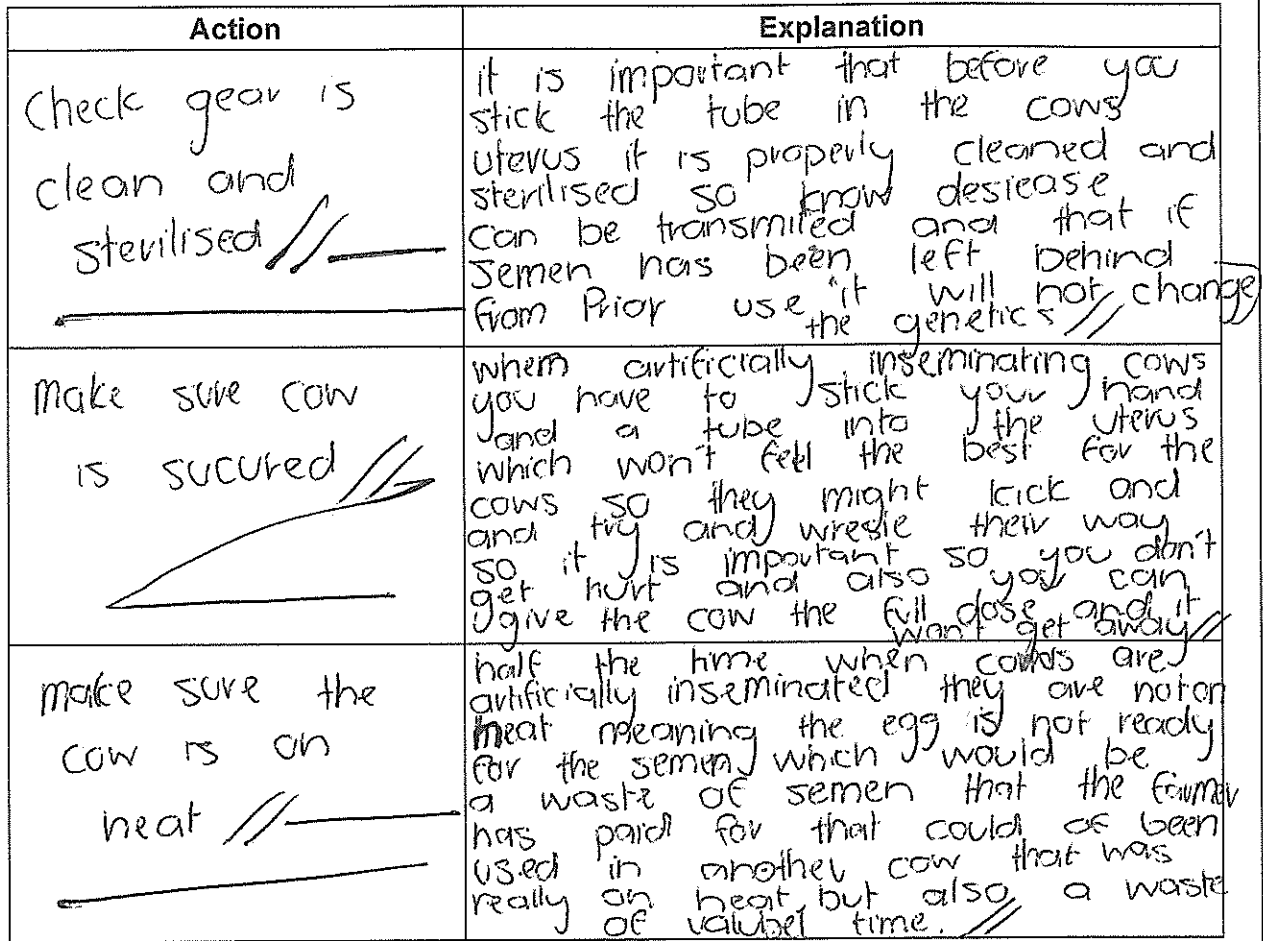 Action
Explanation
Check gear is
clean and
sterilised
it is important that before you
stick the tube in the cows
uterus it is properly cleaned and
sterilised so know desiease
can be transmited and that if
semen has been left behind
from Prior use it will not change
the genetics
Make sure cow
is sucured
when artificially inseminating cows
you have to stick your hand
and a tube into the uterus
which won't feel the best for the
cows so they might kick and
and try and wresle their way
so it is important so you don't
get hurt and also you can
give the cow the full dose and it
won't get away
make sure the
cow is on
heat
half the time when cows are
artificially inseminated they are not on
heat meaning the egg is not ready
for the semen which would be
a waste of semen that the farmer
has paid for that could of been
used in another cow that was
really on heat but also a waste
of valubel time.